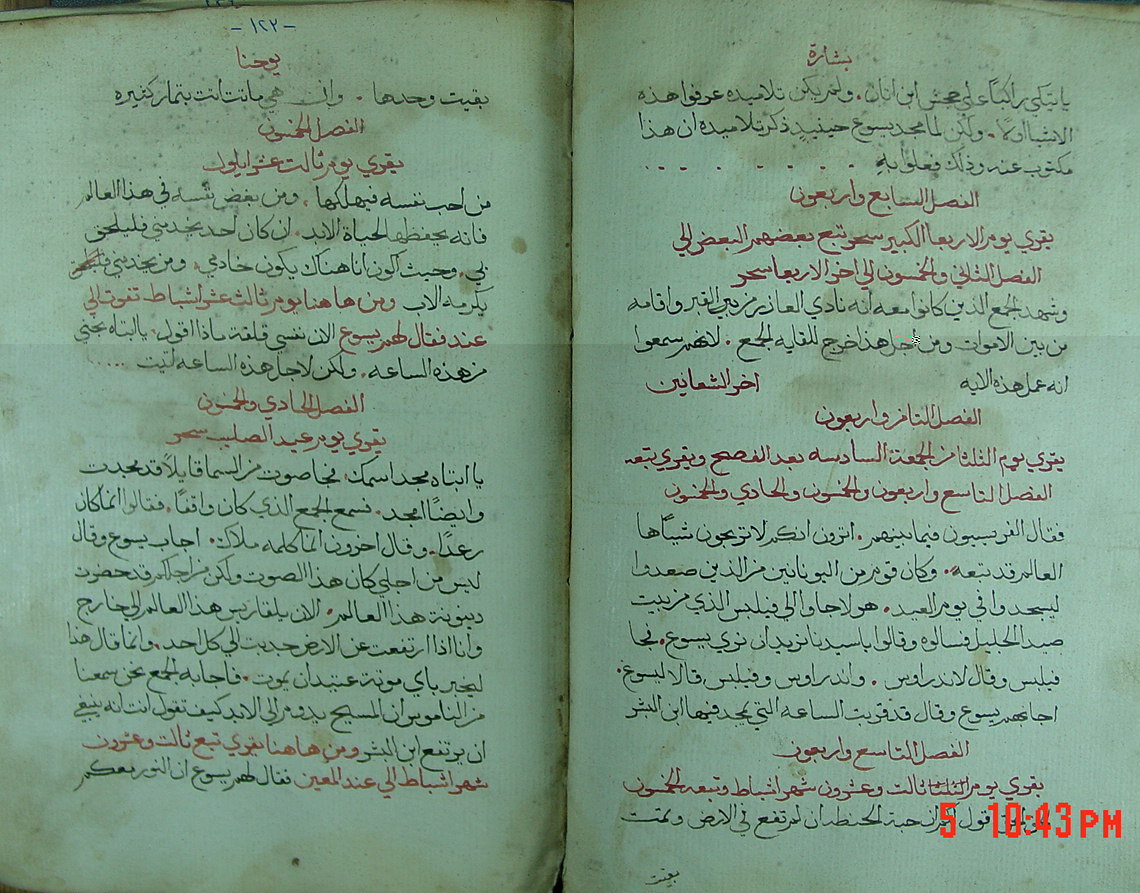 بشارة
ياتيكي راكبًا علي جحش ابن اتان . ولم يكن تلاميذه عرفوا هذه
الاشيا اولًا . ولكن لما مجد يسوع حينيذ ذكر تلاميذه ان هذا
مكتوب عنه وذلك فعلوا به
الفصل السابع واربعون
يقري يوم الاربعا الكبير سحر تبع بعضهم البعض الي
الفصل الثاني والخمسون الي اخر الاربعا سحر
وشهد الجمع الذين كانوا معه انه نادي العازر من بين القبر واقامه
من بين الاموات ومن اجل هذا خرج للقايه الجمع . لانهم سمعوا
انه عمل هذه الايه اخر الشعانين
الفصل الثامن واربعون
يقري يوم الثلثا من الجمعة السادسه بعد الفصح ويقري تبعه
الفصل التاسع واربعون والخمسون والحادي والخمسون
فقال الفريسيون فيما بينهم . اترون انكم لا تربحون شياً ها
العالم قد تبعه . وكان قوم من اليونانيين من الذين صعدوا
ليسجدوا في يوم العيد . هولا جاوا الي فيلبس الذي من بيت
صيدا الجليل فسالوه وقالوا يا سيدنا نريد ان نري يسوع . فجا
فيلبس وقال لاندراوس . واندراوس وفيلبس قالا ليسوع .
اجابهم يسوع وقال قد قربت الساعه التي يمجد فيها ابن البشر
الفصل التاسع واربعون
يقري يوم ثالث وعشرون شهر اشباط وتبعه الخمسون
اقول لكم ان حبة الحنطه ان لم تقع في الارض وتمت
بقيت
- ١٢٢ -
يوحنا
بقيت وحدها . وان هي ماتت اتت بثمار كثيره .
الفصل الخمسون
يقري يوم ثالث عشر ايلول
من احب نفسه فيهلكها . ومن بغض نفسه في هذا العالم
فانه يحفظها لحياة الابد . ان كان احد يخدمني فليلحق
بي . وحيث اكون انا هناك يكون خادمي . ومن يخدمني
يكرمه الاب ومن هاهنا يوم ثالث عشر اشباط تفوت الي
عند فقال لهم يسوع الان نفسي قلقة ماذا اقول . يا ابتاه نجني
من هذه الساعه . ولكن لاجل هذه الساعه اتيت
الفصل الحادي والخمسون
يقري يوم عيد الصليب سحر
يا ابتاه مجد اسمك . فجا صوت من السما قايلاً قد مجدت
وايضًا امجد . فسمع الجمع الذي كان واقفًا . فقالوا انما كان
رعدًا . وقال اخرون انما كلمه ملاك . اجاب يسوع وقال
ليس من اجلي كان هذا الصوت ولكن من اجلكم قد حضرت
دينونة هذا العالم . الان يلقا ريس هذا العالم الي خارج
وانا اذا ارتفعت عن الارض جذبت الي كل احد . وانما قال هذا
ليخبر باي موتة عتيد ان يموت . فاجابه الجمع نحن سمعنا
من الناموس ان المسيح يدوم الي الابد كيف تقول انت انه ينبغي
ان يرتفع ابن البشر ومن هاهنا يقري تبع ثالث وعشرون
شهر اشباط الي عند المعين فقال لهم يسوع ان النور معكم
5 10:43 PM